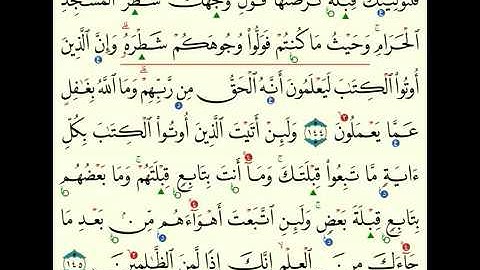 فَلَنُوَلِّيَنَّكَ قِبْلَةً تَرْضَىٰهَا فَوَلِّ وَجْهَكَ شَطْرَ الْمَسْجِدِ
الْحَرَامِ ۚ وَحَيْثُ مَا كُنتُمْ فَوَلُّوا۟ وُجُوهَكُمْ شَطْرَهُۥ ۗ وَإِنَّ الَّذِينَ
أُوتُوا۟ الْكِتَٰبَ لَيَعْلَمُونَ أَنَّهُ الْحَقُّ مِن رَّبِّهِمْ ۗ وَمَا اللَّهُ بِغَٰفِلٍ
عَمَّا يَعْمَلُونَ ١٤٤ وَلَئِنْ أَتَيْتَ الَّذِينَ أُوتُوا۟ الْكِتَٰبَ بِكُلِّ
ءَايَةٍ مَّا تَبِعُوا۟ قِبْلَتَكَ ۚ وَمَآ أَنتَ بِتَابِعٍ قِبْلَتَهُمْ ۚ وَمَا بَعْضُهُم
بِتَابِعٍ قِبْلَةَ بَعْضٍ ۚ وَلَئِنِ اتَّبَعْتَ أَهْوَآءَهُم مِّنۢ بَعْدِ مَا
جَآءَكَ مِنَ الْعِلْمِ ۙ إِنَّكَ إِذًا لَّمِنَ الظَّٰلِمِينَ ١٤٥